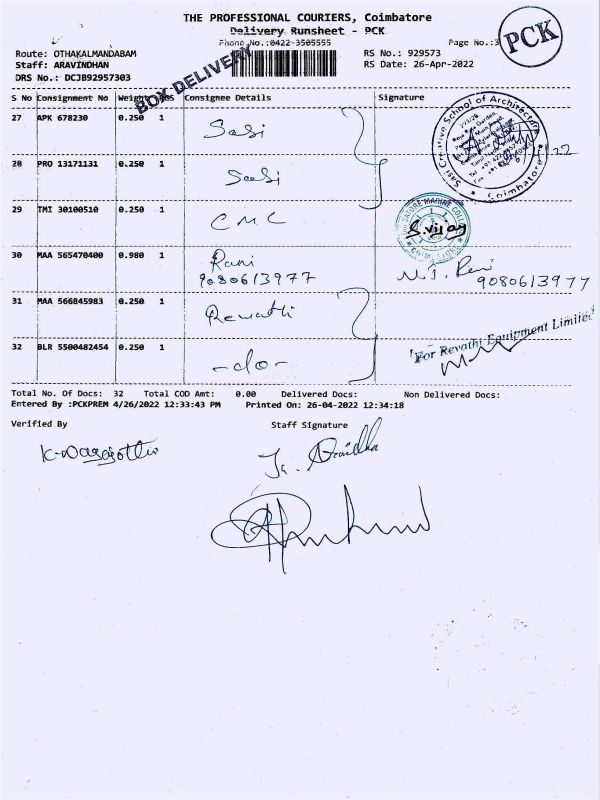 THE PROFESSIONAL COURIERS, Coimbatore
Delivery Runsheet - PCK
Phone No.:0422-3505555
Page No.:3
PCK
Route: OTHAKALMANDABAM
RS No.: 929573
Staff: ARAVINDHAN
RS Date: 26-Apr-2022
DRS No.: DCJB92957303
BOX DELIVERY
S No Consignment No Weight PCS Consignee Details Signature
27 APK 678230 0.250 1 Sasi
Sasi Creative School of Architecture
Coimbatore
28 PRO 13171131 0.250 1 Sasi
29 TMI 30100510 0.250 1 CMC
S.vijay
30 MAA 565470400 0.980 1 Rani
9080613977
9080613977
31 MAA 566845983 0.250 1 Revathi
For Revathi Equipment Limited
32 BLR 5500482454 0.250 1 -do-
Total No. Of Docs: 32 Total COD Amt: 0.00 Delivered Docs: Non Delivered Docs:
Entered By :PCKPREM 4/26/2022 12:33:43 PM Printed On: 26-04-2022 12:34:18
Verified By
Staff Signature